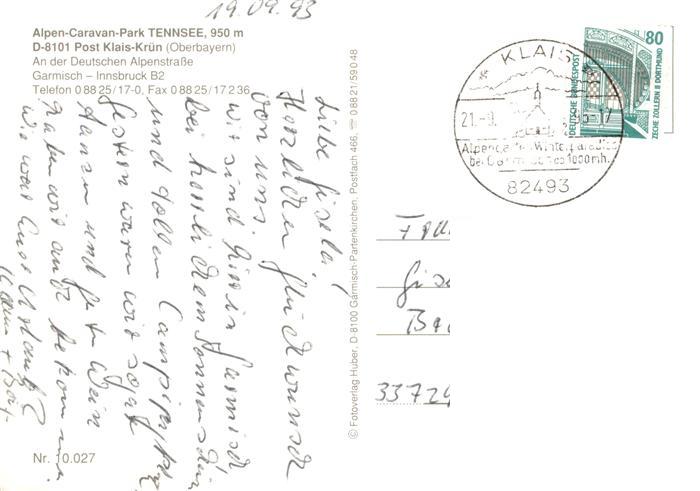 19.09.93
Alpen-Caravan-Park TENNSEE, 950 m
D-8101 Post Klais-Krün (Oberbayern)
An der Deutschen Alpenstraße
Garmisch – Innsbruck B2
Telefon 0 88 25/17-0, Fax 0 88 25/17 2 36
Liebe Gisela!
Herzlichen Glückwunsch
von uns.
wir sind hier in Garmisch
bei herrlichem Sonnenschein
und tollen Campingplatz
gestern waren wir sogar
und guten Wein
haben wir auch bekommen
Wie war Euer Urlaub?
Nr. 10.027
© Fotoverlag Huber, D-8100 Garmisch-Partenkirchen, Postfach 466, ☎ 0 88 21/5 90 48
KLAIS
21.-9.
-17
bei Garmisch 1000 m h.
82493
80
DEUTSCHE BUNDESPOST
ZECHE ZOLLERN II DORTMUND
Gis
Ba
33729